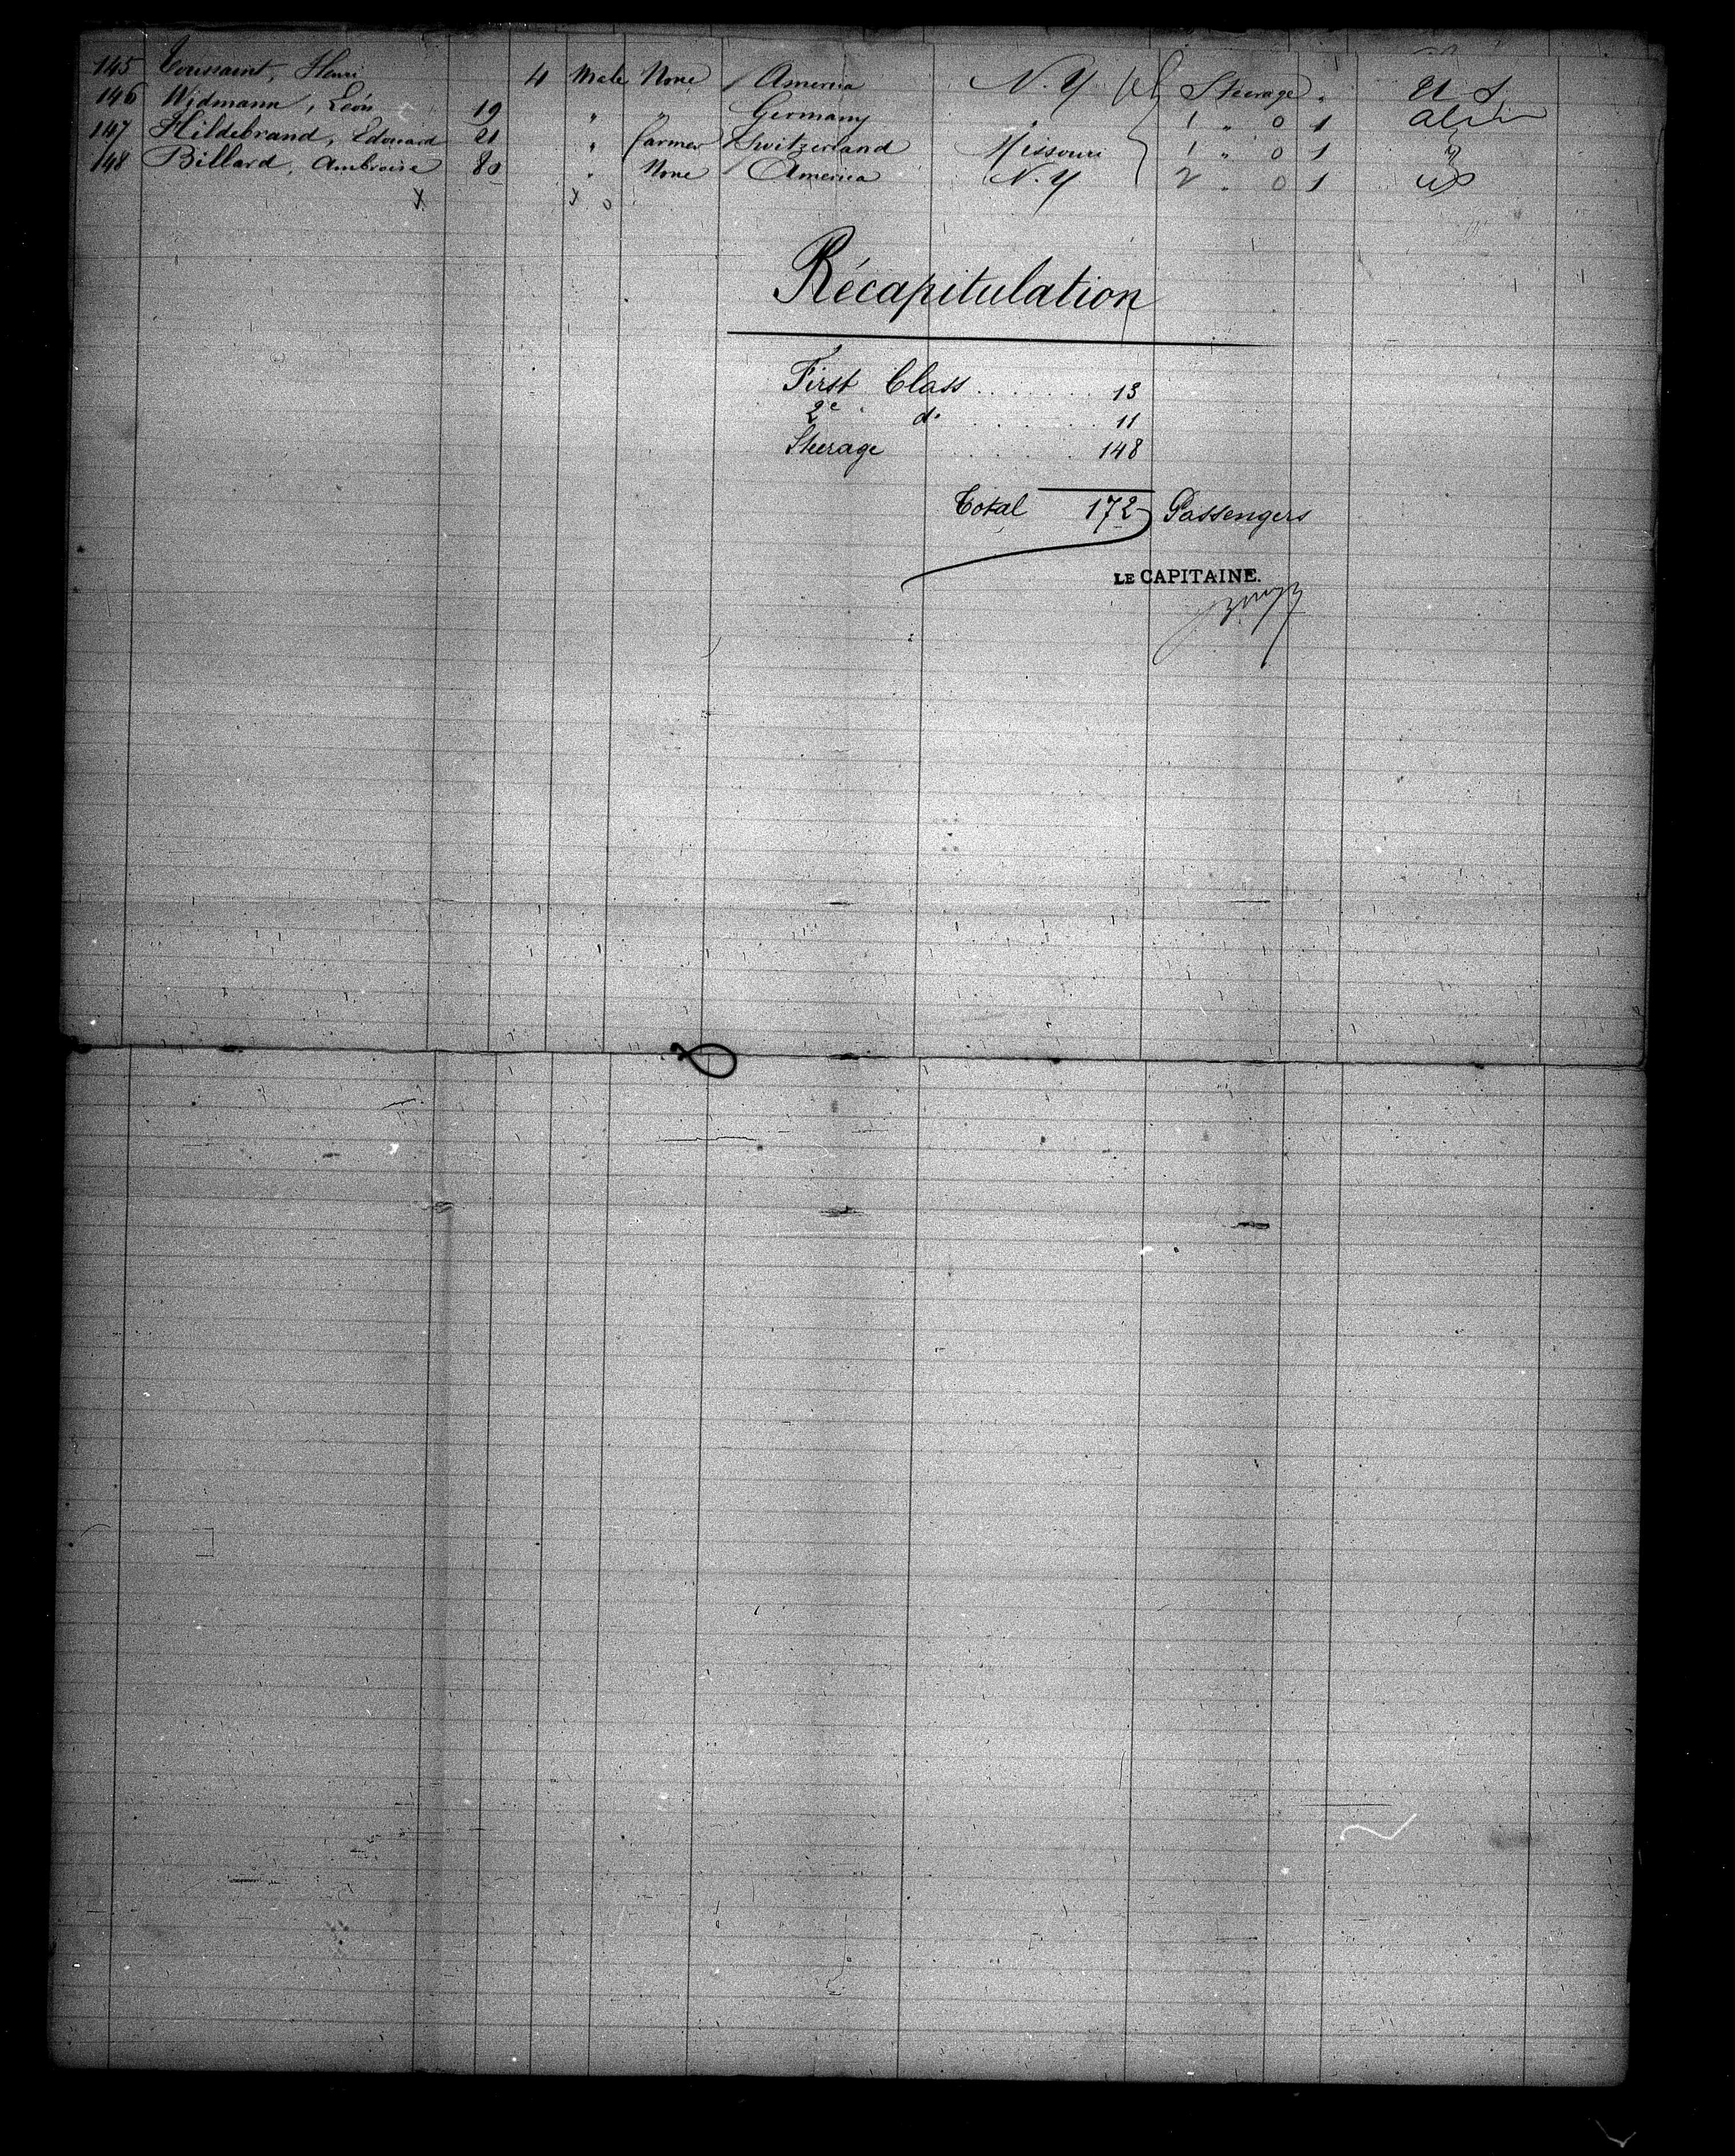 145 Toussaint, Henri 4 Male None America N.Y Steerage U S
146 Widmann, Léon 19 " " Germany 1 " 0 1
147 Hildebrand, Edouard 21 " farmer Switzerland Missouri 1 " 0 1
148 Billard, Ambroise 80 " None America N.Y 2 " 0 1 US
Récapitulation
First Class 13
2e do 11
Steerage 148
Total 172 Passengers
LE CAPITAINE.